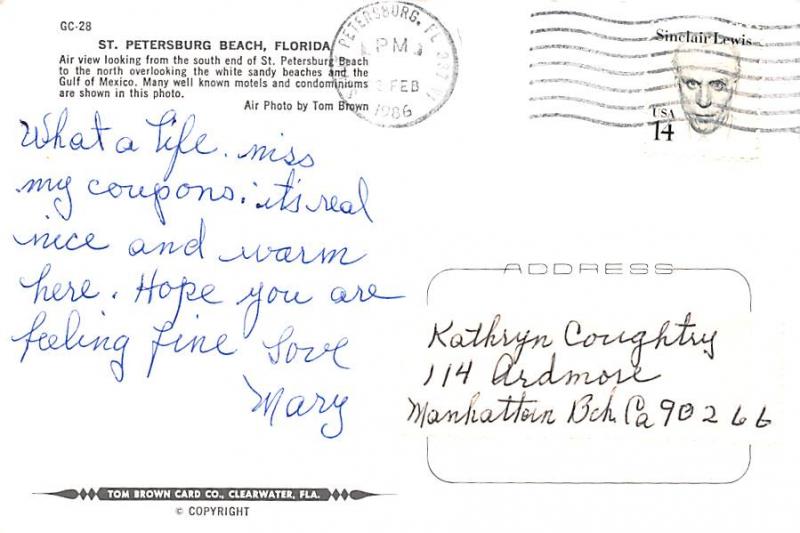 GC-28
ST. PETERSBURG BEACH, FLORIDA
Air view looking from the south end of St. Petersburg Beach
to the north overlooking the white sandy beaches and the
Gulf of Mexico. Many well known motels and condominiums
are shown in this photo.
Air Photo by Tom Brown
PETERSBURG, FL
PM
FEB
1986
Sinclair Lewis
USA
14
What a life. miss
my coupons. it's real
nice and warm
here. Hope you are
feeling fine Love
Mary
ADDRESS
Kathryn Coughtry
114 Ardmore
Manhattan Bch Ca 90266
TOM BROWN CARD CO., CLEARWATER, FLA.
© COPYRIGHT